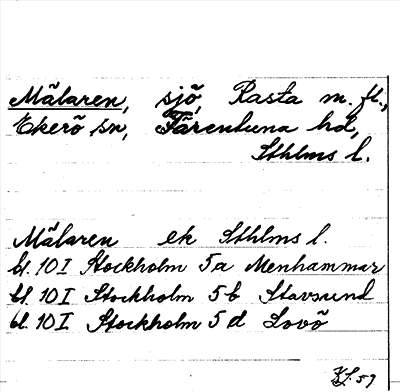 Mälaren, sjö, Rasta m. fl.,
Ekerö sn, Färentuna hd,
Sthlms l.
Mälaren ek Sthlms l.
bl. 10 I Stockholm 5a Menhammar
bl. 10 I Stockholm 5 b Stavsund
bl. 10 I Stockholm 5 d Lovö
59